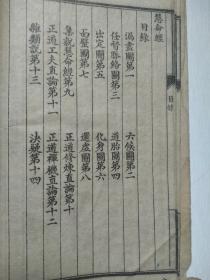 慧命經
目錄
漏盡圖第一　六候圖第二
任督脈絡圖第三　道胎圖第四
出定圖第五　化身圖第六
面壁圖第七　還虛圖第八
集說慧命經第九　正道修煉直論第十
正道工夫直論第十一　正道禪機直論第十二
雜類說第十三　決疑第十四
目錄